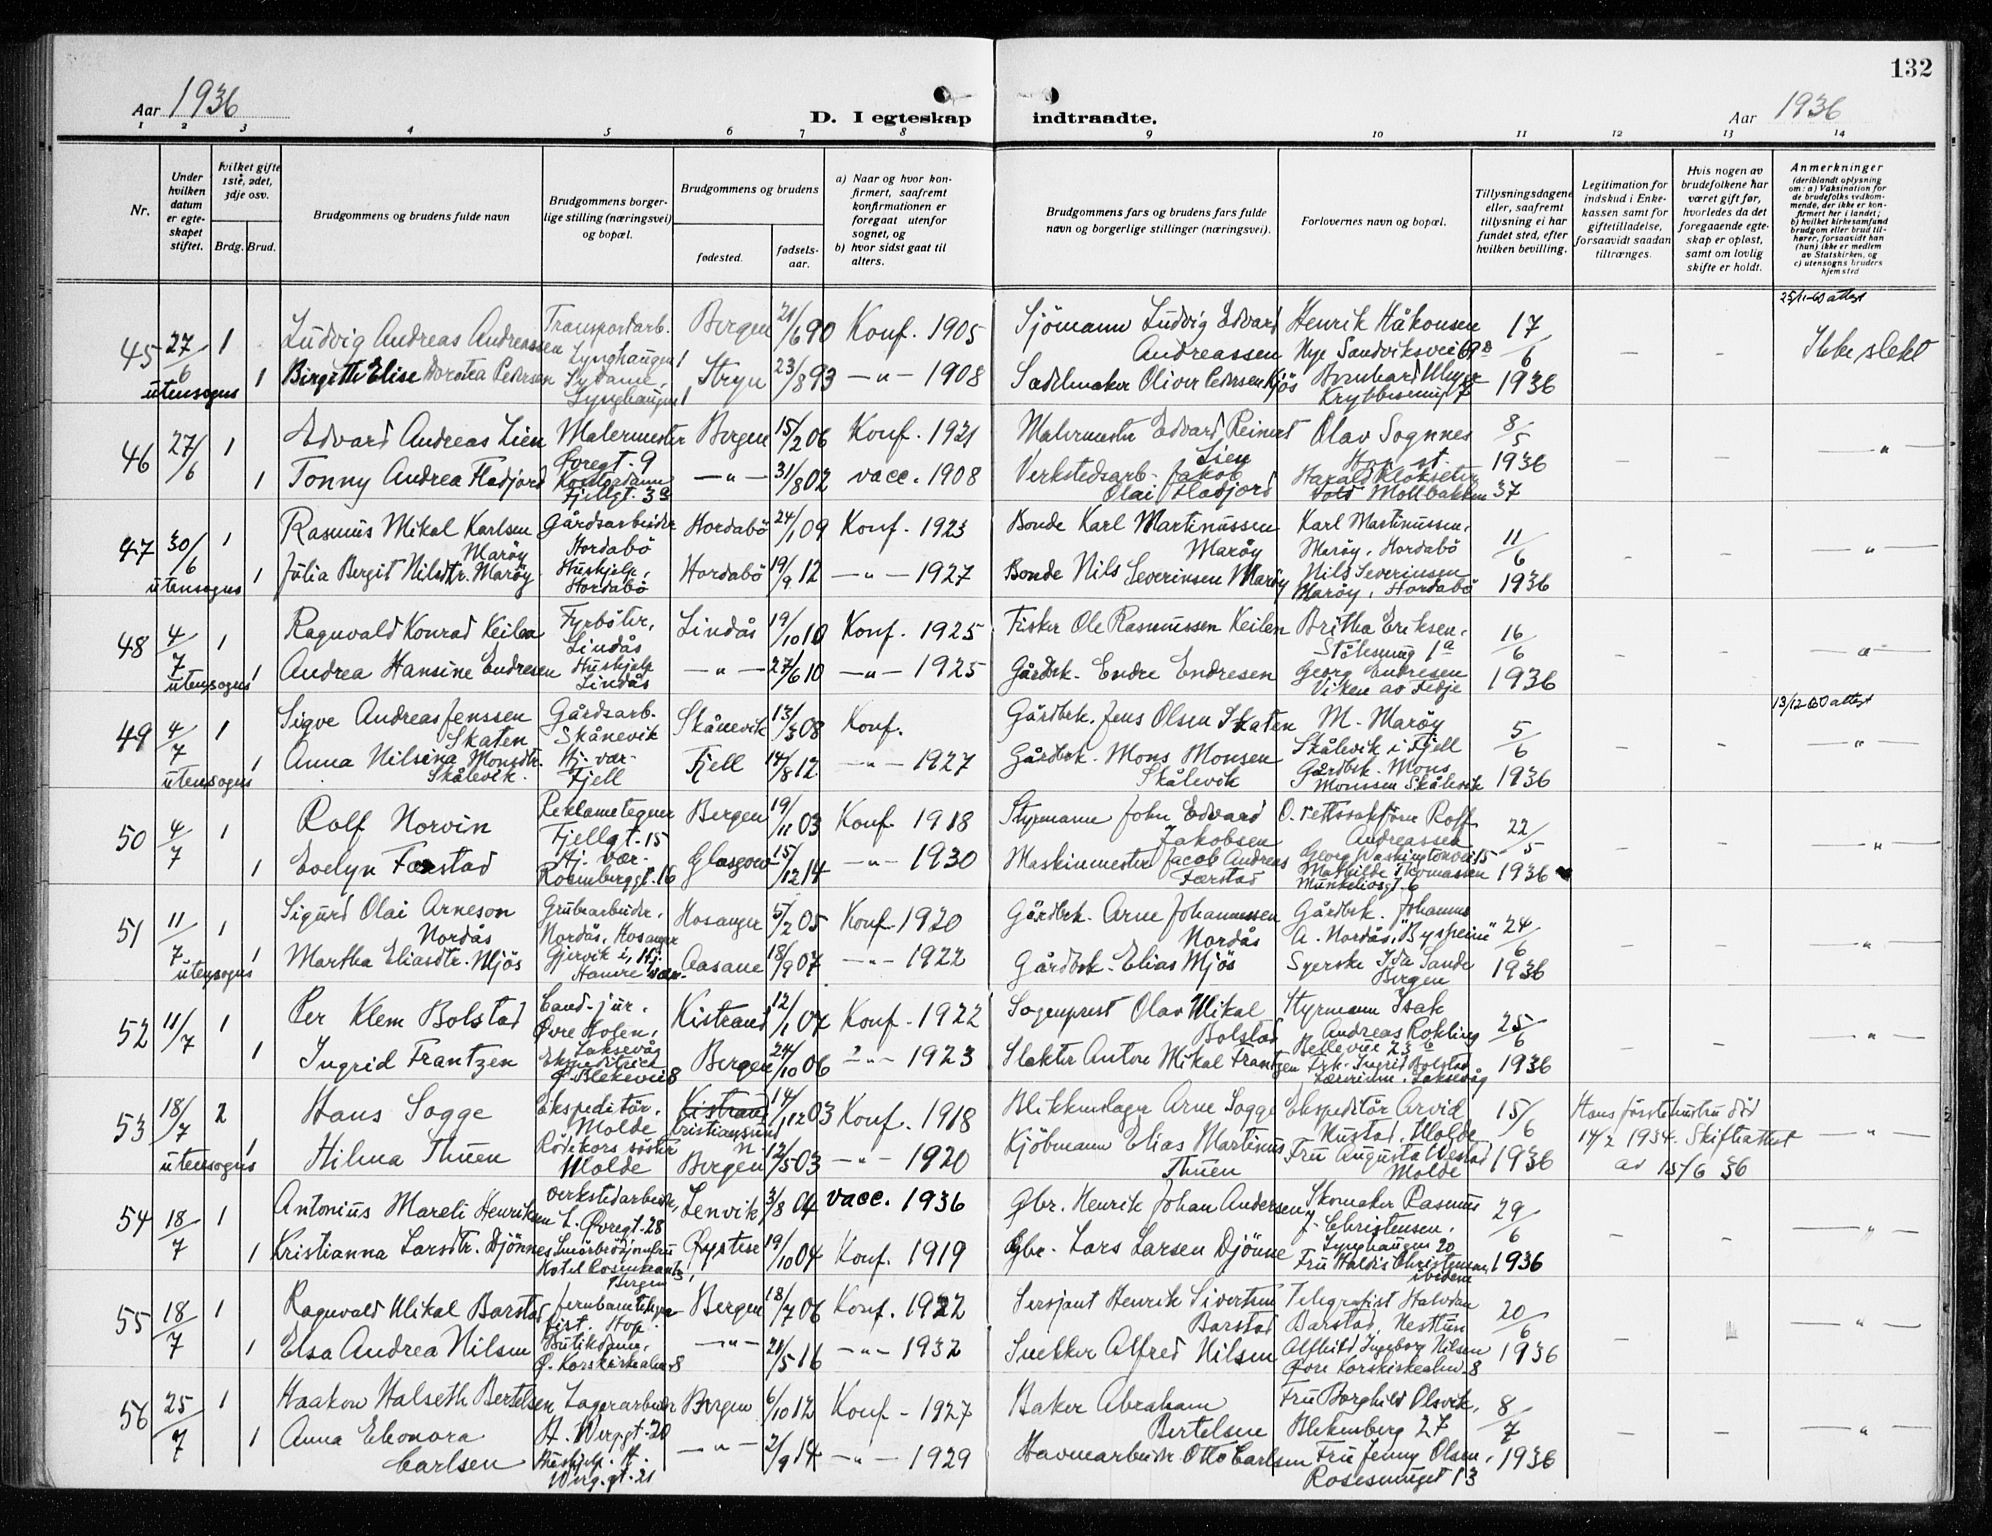 132
Aar 1936
D. I egteskap indtraadte.
Aar 1936
1 2 3 4 5 6 7 8 9 10 11 12 13 14
Nr.
Under hvilken datum er egteskapet stiftet.
hvilket gifte 1ste, 2det, 3dje osv.
Brdg. Brud.
Brudgommens og brudens fulde navn
Brudgommens borgerlige stilling (næringsvei) og bopæl.
Brudgommens og brudens
fødested.
fødselsaar.
a) Naar og hvor konfirmert, saafremt konfirmationen er foregaat utenfor sognet, og
b) hvor sidst gaat til alters.
Brudgommens fars og brudens fars fulde navn og borgerlige stillinger (næringsvei).
Forlovernes navn og bopæl.
Tillysningsdagene eller, saafremt tillysning ei har fundet sted, efter hvilken bevilling.
Legitimation for indskud i Enkekassen samt for giftetilladelse, forsaavidt saadan tiltrænges.
Hvis nogen av brudefolkene har været gift før, hvorledes da det foregaaende egteskap er opløst, samt om lovlig skifte er holdt.
Anmerkninger
(deriblandt oplysning om: a) Vaksination for de brudefolks vedkommende, der ikke er konfirmert her i landet; b) hvilket kirkesamfund brudgom eller brud tilhører, forsaavidt han (hun) ikke er medlem av Statskirken, og c) utensogns bruders hjemsted
45 27/6 1 Ludvig Andreas Andreassen Transportarb. Lynghaugen 1 Bergen 21/6 90 Konf. 1905 Sjömann Ludvig Edvard Andreassen Henrik Håkonsen Nye Sandviksvei 69 B 17/6 1936 – – 25/11-60 attest Ikke slekt
utensogns 1 Birgitte Elise Dorotea Pedersen Sydame, Lynghaugen 1 Stryn 23/8 93 –"– 1908 Sadelmaker Oliver Pedersen Kjös Bernhard Meyer
46 27/6 1 Edvard Andreas Lien Malermester Øvregt. 9 Bergen 15/2 06 Konf. 1921 Malermester Edvard Reinert Lien Olav Sognnes Hop st. 8/5 1936 – – "
1 Tonny Andrea Fladjord Kontordame Fjellgt. 3a –"– 31/8 02 vacc. 1908 Verkstedsarb. Jakob Olai Fladjord Harald Klokseter Møllbakken 37
47 30/6 1 Rasmus Mikal Karlsen Marøy Gårdsarbeider Hordabö Hordabö 24/1 09 Konf. 1923 Bonde Karl Martinussen Marøy Karl Martinussen, Marøy, Hordabö 11/6 1936 – – "
utensogns 1 Julia Bergit Nilsdtr. Marøy Hushjelp, Hordabö Hordabö 19/9 12 –"– 1927 Bonde Nils Severinsen Marøy Nils Severinsen Marøy, Hordabö
48 4/7 1 Ragnvald Konrad Keilen Fyrböter, Lindås Lindås 19/10 10 Konf. 1925 Fisker Ole Rasmussen Keilen Britha Eriksen, Stölesmug 1a 16/6 1936 – – "
utensogns 1 Andrea Hansine Endresen Hushjelp Lindås –"– 27/6 10 –"– 1925 Gårdbr. Endre Endresen Georg Endresen Viken av Fedje
49 4/7 1 Sigve Andreas Jenssen Skaten Gårdsarb. Skånevik Skånevik 13/3 08 Konf. Gårdbr. Jens Olsen Skaten M. Marøy Skålevik i Fjell 5/6 1936 – – 13/12-60 attest "
utensogns 1 Anna Nilsina Monsdtr. Skålevik. Hj. vær. Fjell Fjell 14/8 12 –"– 1927 Gårdbr. Mons Monsen Skålevik Gårdbr. Mons Monssen Skålevik
50 4/7 1 Rolf Norvin Reklametegner Fjellgt. 15 Bergen 19/11 03 Konf. 1918 Styrmann John Edvard Jakobsen O.rettssakförer Rolf Andreassen Georg Washingtonvei 15 22/5 1936 – – "
1 Evelyn Færstad Hj. vær. Rosenberggt. 16 Glasgow 15/12 14 –"– 1930 Maskinmester Jacob Andreas Færstad Mathilde Thomassen Munkeliasgt. 6
51 11/7 1 Sigurd Olai Arneson Nordås Grubearbeider, Nordås, Hosanger Hosanger 5/2 05 Konf. 1920 Gårdbr. Arne Johannessen Nordås Gårdbr. Johannes A. Nordås, "Bysheim" 24/6 1936 – – "
utensogns 1 Martha Eliasdtr. Mjös Gjervik i Hamre Hj. vær. Aasane 18/9 07 –"– 1922 Gårdbr. Elias Mjös Syerske Ida Sande Bergen
52 11/7 1 Per Klem Bolstad Cand. jur. Øvre Holen, Laksevåg Kistrand 12/1 07 Konf. 1922 Sogneprest Olav Mikal Bolstad Styrmann Isak Andreas Rokling Bellevue 23 b 25/6 1936 – – "
1 Ingrid Frantzen Ekspeditrice Ø. Blekevei 8 Bergen 24/10 06 –"– 1923 Slakter Anton Mikal Frantzen Frk. Ingrid Bolstad Lærerinne, Laksevåg
53 18/7 2 Hans Sogge Ekspeditör, Molde Kristiansund N 14/12 03 Konf. 1918 Blikkenslager Arne Sogge Ekspeditör Arvid Hustad, Molde 15/6 1936 Hans förste hustru död 14/2 1934. Skifteattest av 15/6 36 –"–
utensogns 1 Hilma Thuen Rödekors söster Molde Bergen 12/5 03 –"– 1920 Kjöbmann Elias Martinus Thuen Fru Augusta Westad Molde
54 18/7 1 Antonius Mareli Henriksen Verkstedarbeider, L. Øvregt. 28 Lenvik 3/8 04 vacc. 1936 Gbr. Henrik Johan Andersen Skomaker Rasmus J. Christensen, Lynghaugen 20 29/6 1936 – – "
1 Kristianna Larsdtr. Djönne Smörbrödjomfru Hotel Rosenkrantz, Bergen Øystese 19/10 04 Konf. 1919 Gbr. Lars Larsen Djönne Fru Haldis Christensen, ibidem
55 18/7 1 Ragnvald Mikal Barstad Jernbanetelegrafist. Hop. Bergen 18/7 06 Konf. 1922 Sersjant Henrik Sivertsen Barstad Telegrafist Halvdan Barstad, Nesttun 20/6 1936 – – "
1 Elsa Andrea Nilsen Butikdame, Ø. Korskirkealm. 8 –"– 21/5 16 –"– 1932 Snekker Alfred Nilsen Alfhild Ingeborg Nilsen Øvre Korskirkealm. 8
56 25/7 1 Haakon Halseth Bertelsen Lagerarbeider H. Wergt. 20 Bergen 6/10 12 Konf. 1927 Baker Abraham Bertelsen Fru Borghild Olsvik, Blekenberg 27 8/7 1936 – – "
1 Anna Eleonora Carlsen Hushjelp. H. Werg.gt. 21 –"– 2/9 14 –"– 1929 Havnearbeider Otto Carlsen Fru Jenny Olsen, Rosesmuget 13